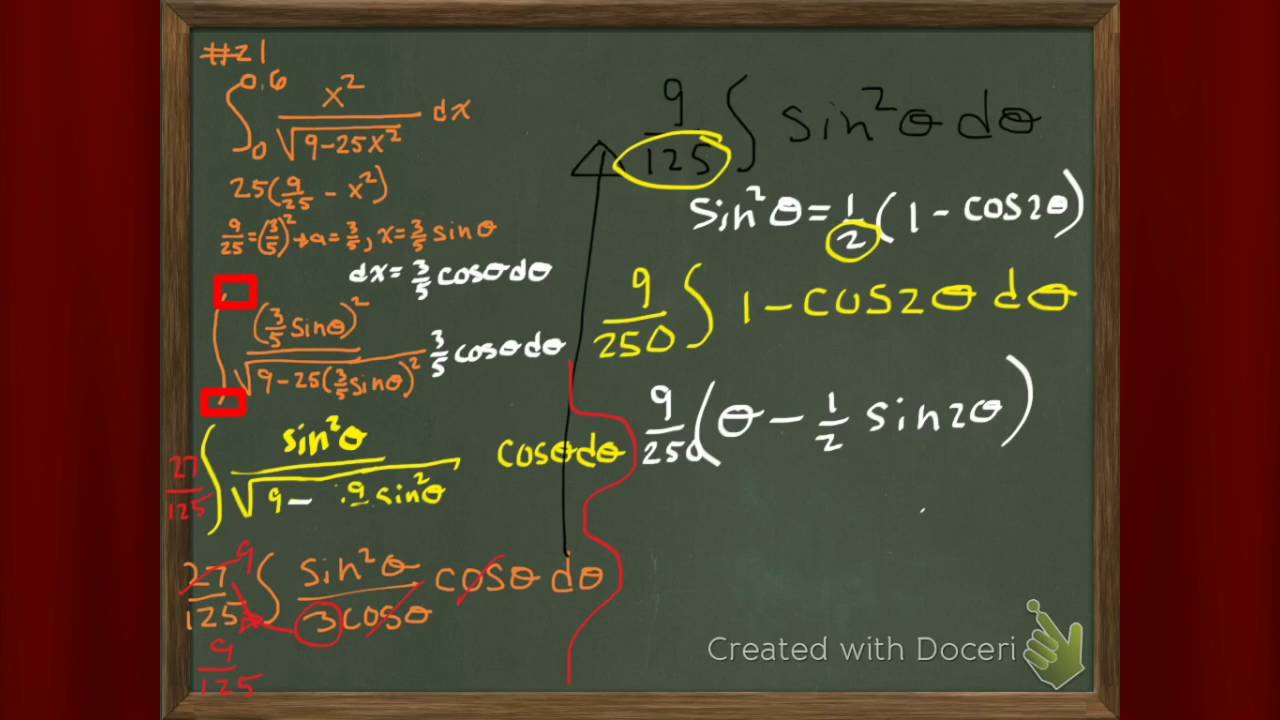 #21
∫₀^0.6 x²/√(9-25x²) dx
25(9/25 - x²)
9/25 = (3/5)² → a = 3/5, x = 3/5 sinθ
dx = 3/5 cosθ dθ
∫ (3/5 sinθ)²/√(9-25(3/5 sinθ)²) 3/5 cosθ dθ
27/125 ∫ sin²θ/√(9 - 9 sin²θ) cosθ dθ
27/125 9 ∫ sin²θ/3cosθ cosθ dθ
9/125
9/125 ∫ sin²θ dθ
sin²θ = 1/2 (1 - cos2θ)
9/250 ∫ 1 - cos2θ dθ
9/250 (θ - 1/2 sin2θ)
Created with Doceri